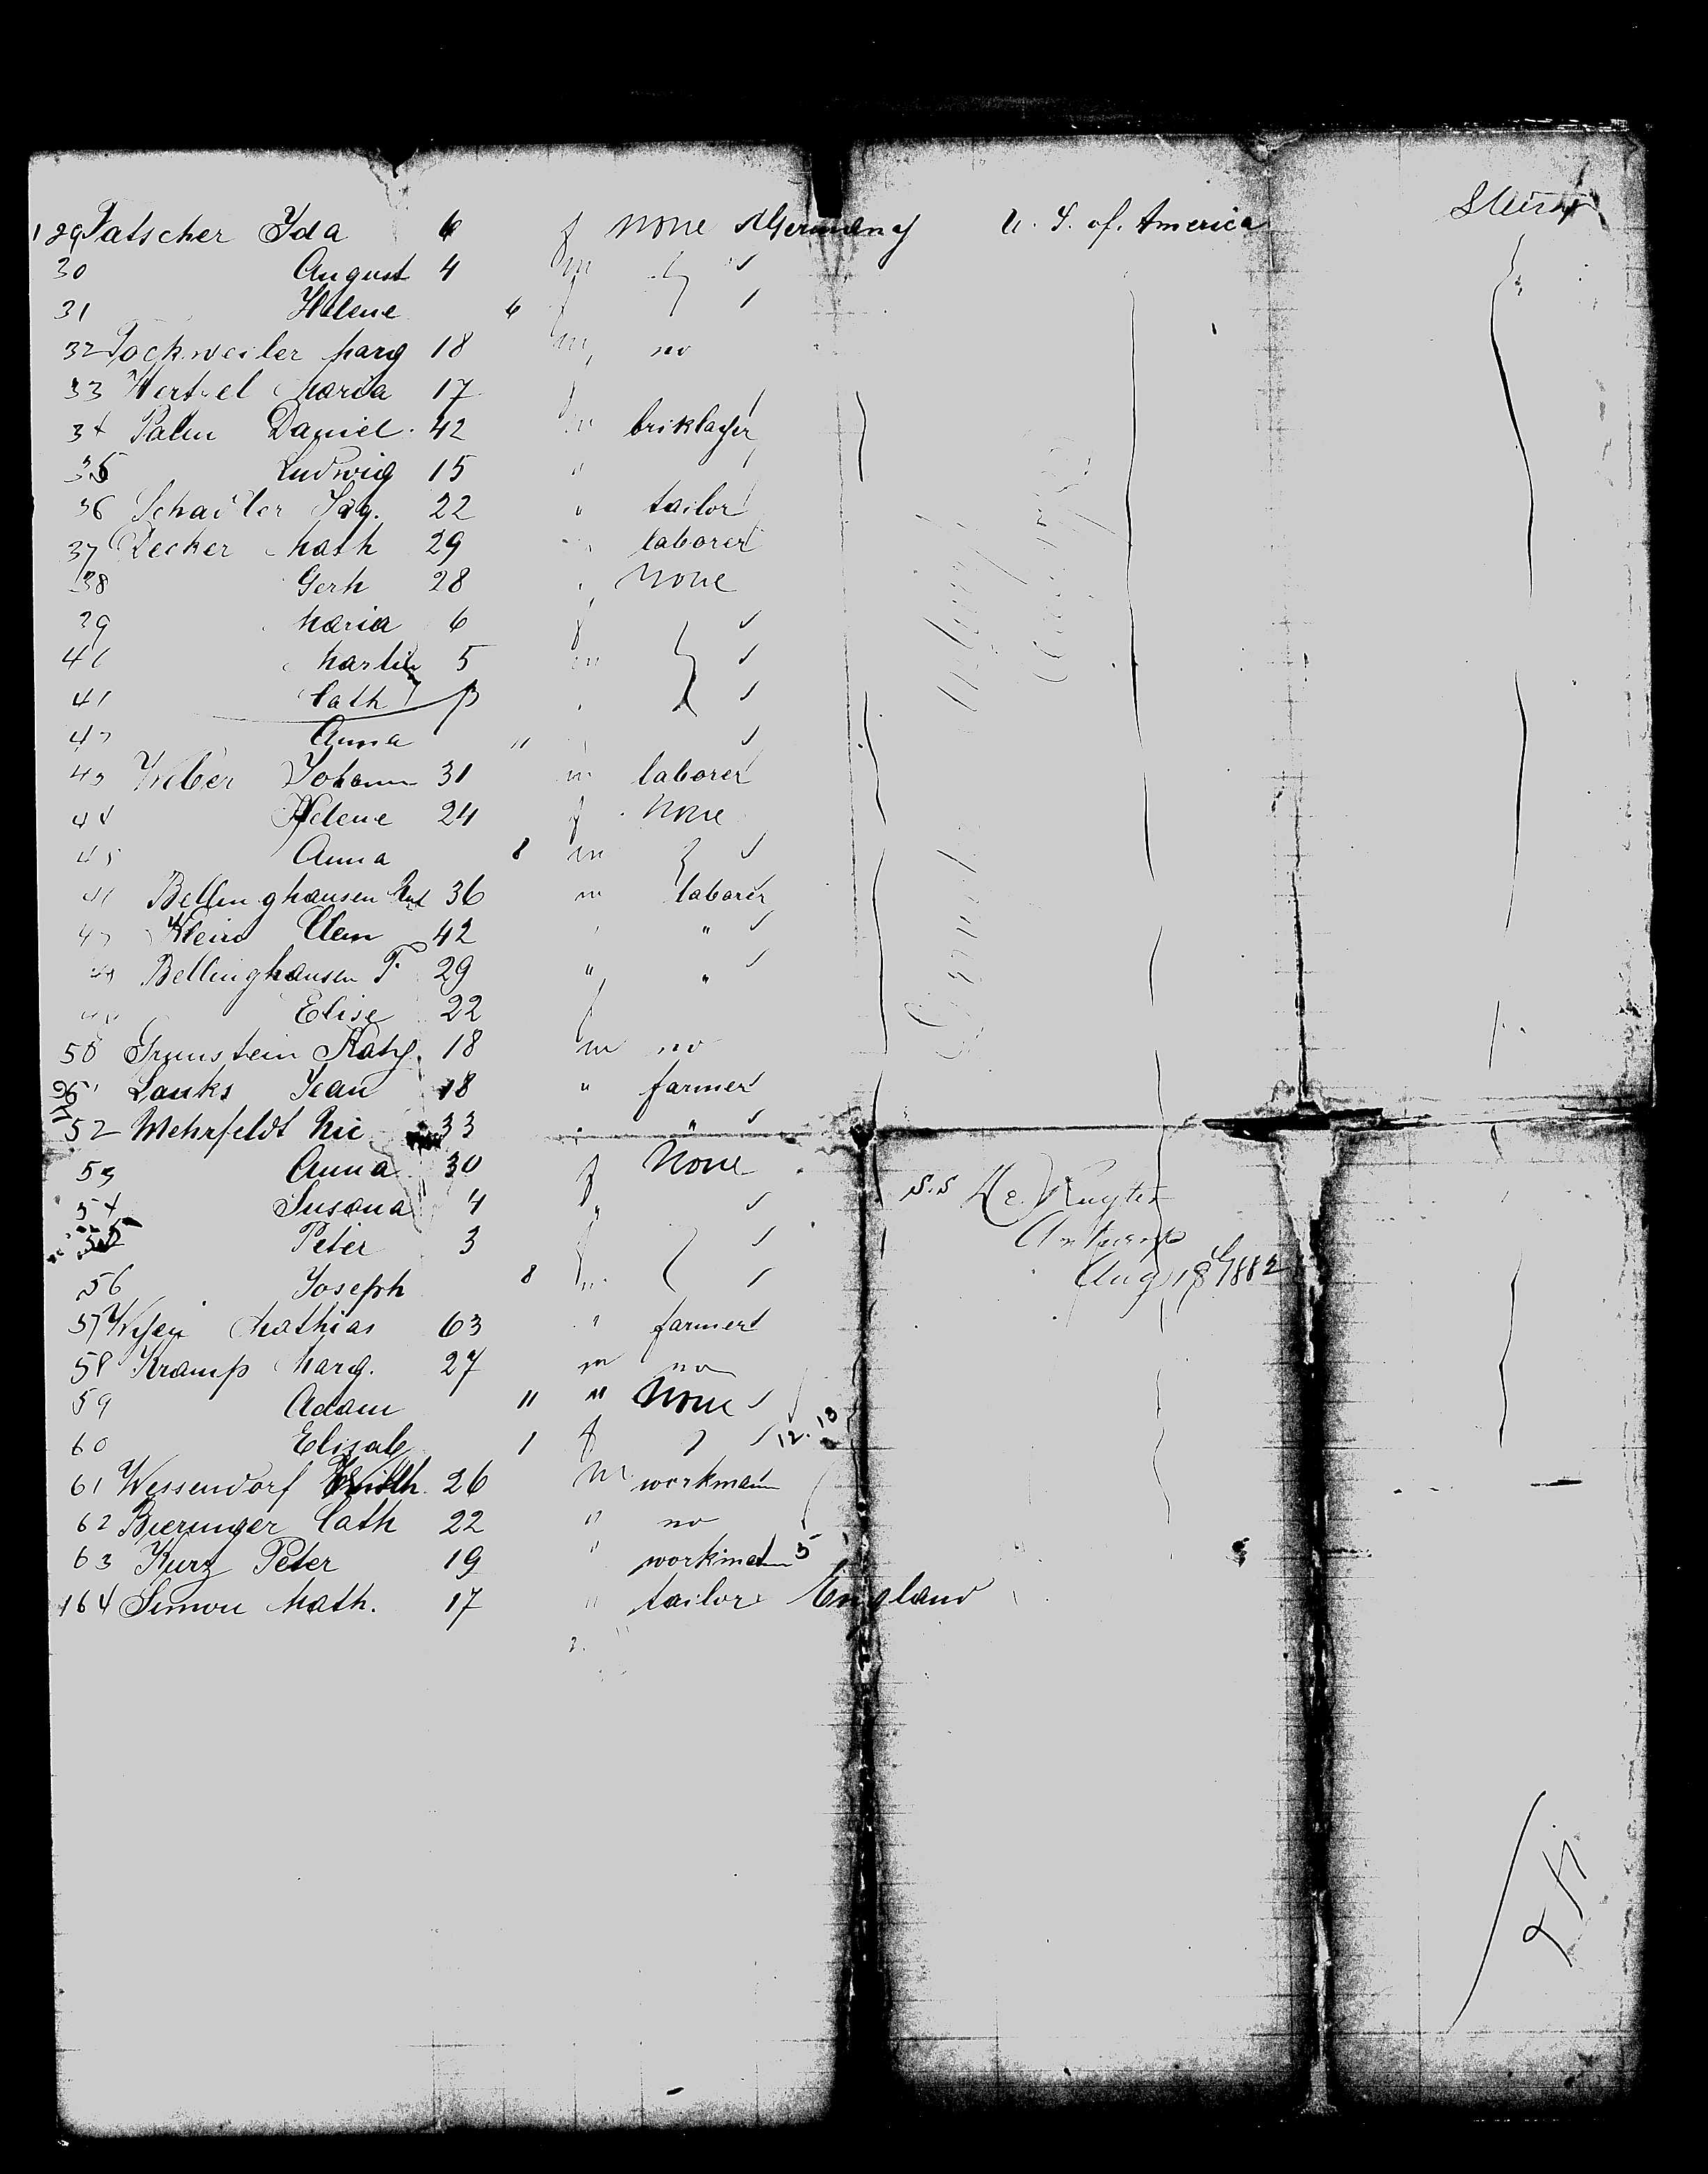 129 Patscher Ida 6 f none Germany U. S. of America
30 August 4 m
31 Helene 6 f
32 Marg 18 no
33 Maria 17
34 Palm Daniel 42 m briklayer
35 Ludwig 15 "
36 22 " tailor
37 Decker Math 29 laborer
38 Gerh 28 none
39 Maria 6 f
40 Martin 5 m
41 Cath
42 Anna "
43 Weber Johann 31 m laborer
44 Helene 24 f none
45 Anna 8 m
46 Bellinghausen 36 m laborer
47 Klein Clem 42 "
48 Bellinghausen F. 29 " "
49 Elise 22 f
50 Grunstein Kath. 18 m no
51 Lauks Jean 18 " farmer
52 Mehrfeldt Nic 33 "
53 Anna 30 f none
54 Susana 4 "
55 Peter 3
56 Joseph 8 m
57 Mathias 63 " farmer
58 Kramp Marg. 27 m no
59 Adam 11 " none
60 Elisab 1 f
61 Wessendorf 26 m workman
62 Bieringer Cath 22 " no
63 Kurz Peter 19 " workman
164 Simon Math. 17 " tailor England
S.S De Ruyter
Antwerp
Aug 18 1882